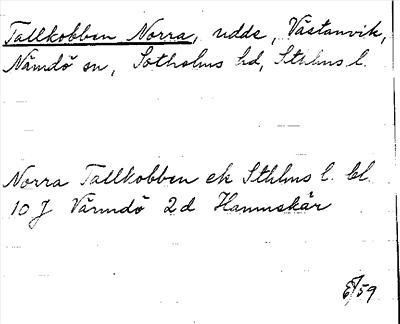 Tallkobben Norra, udde, Västanvik,
Nämdö sn, Sotholms hd, Sthlms l.
Norra Tallkobben ek Sthlms l. bl.
10 J Värmdö 2d Hamnskär
/59